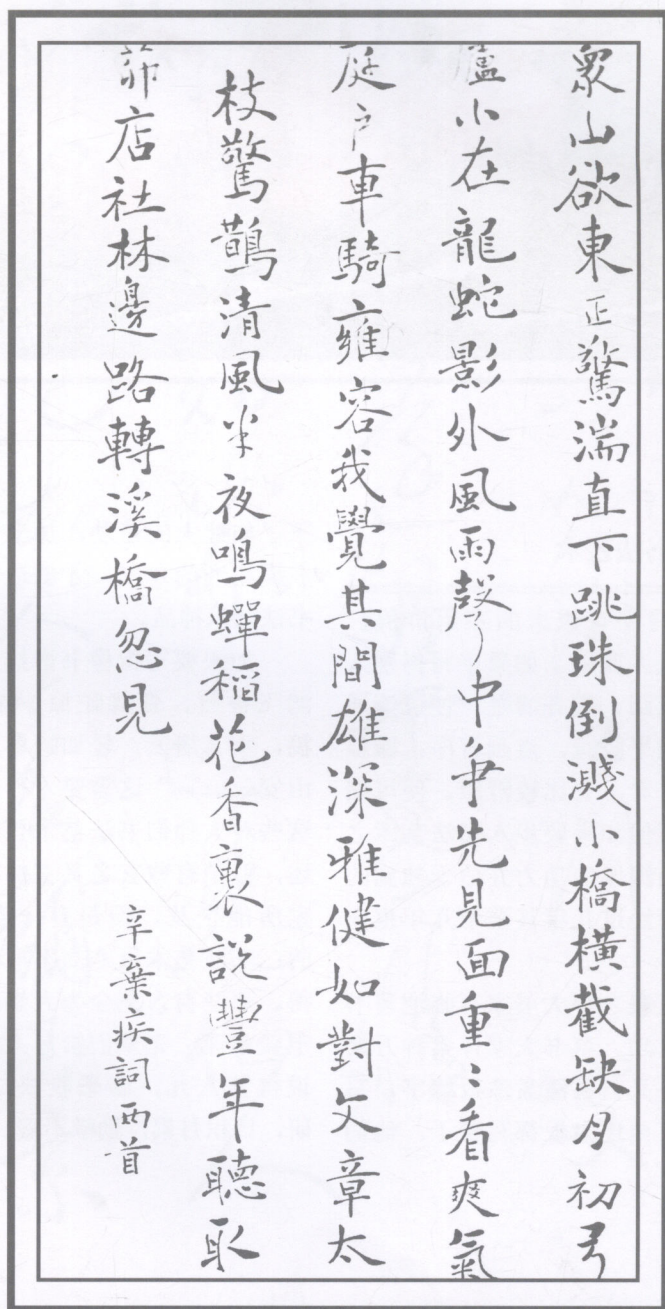 眾山欲東正驚湍直下跳珠倒濺小橋橫截缺月初弓
廬小在龍蛇影外風雨聲中中先見面重〻看爽氣
庭户車騎雍容我覺其間雄深雅健如對文章太
枝驚鵲清風半夜鳴蟬稻花香裏說豐年聽取
茆店社林邊路轉溪橋忽見
辛棄疾詞两首